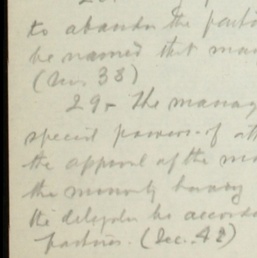 to abandon the
be named that
(Sec. 38)
29- The manag
special powers of
the approval of the
the minority having
the delegation be accorde
(Sec. 42)